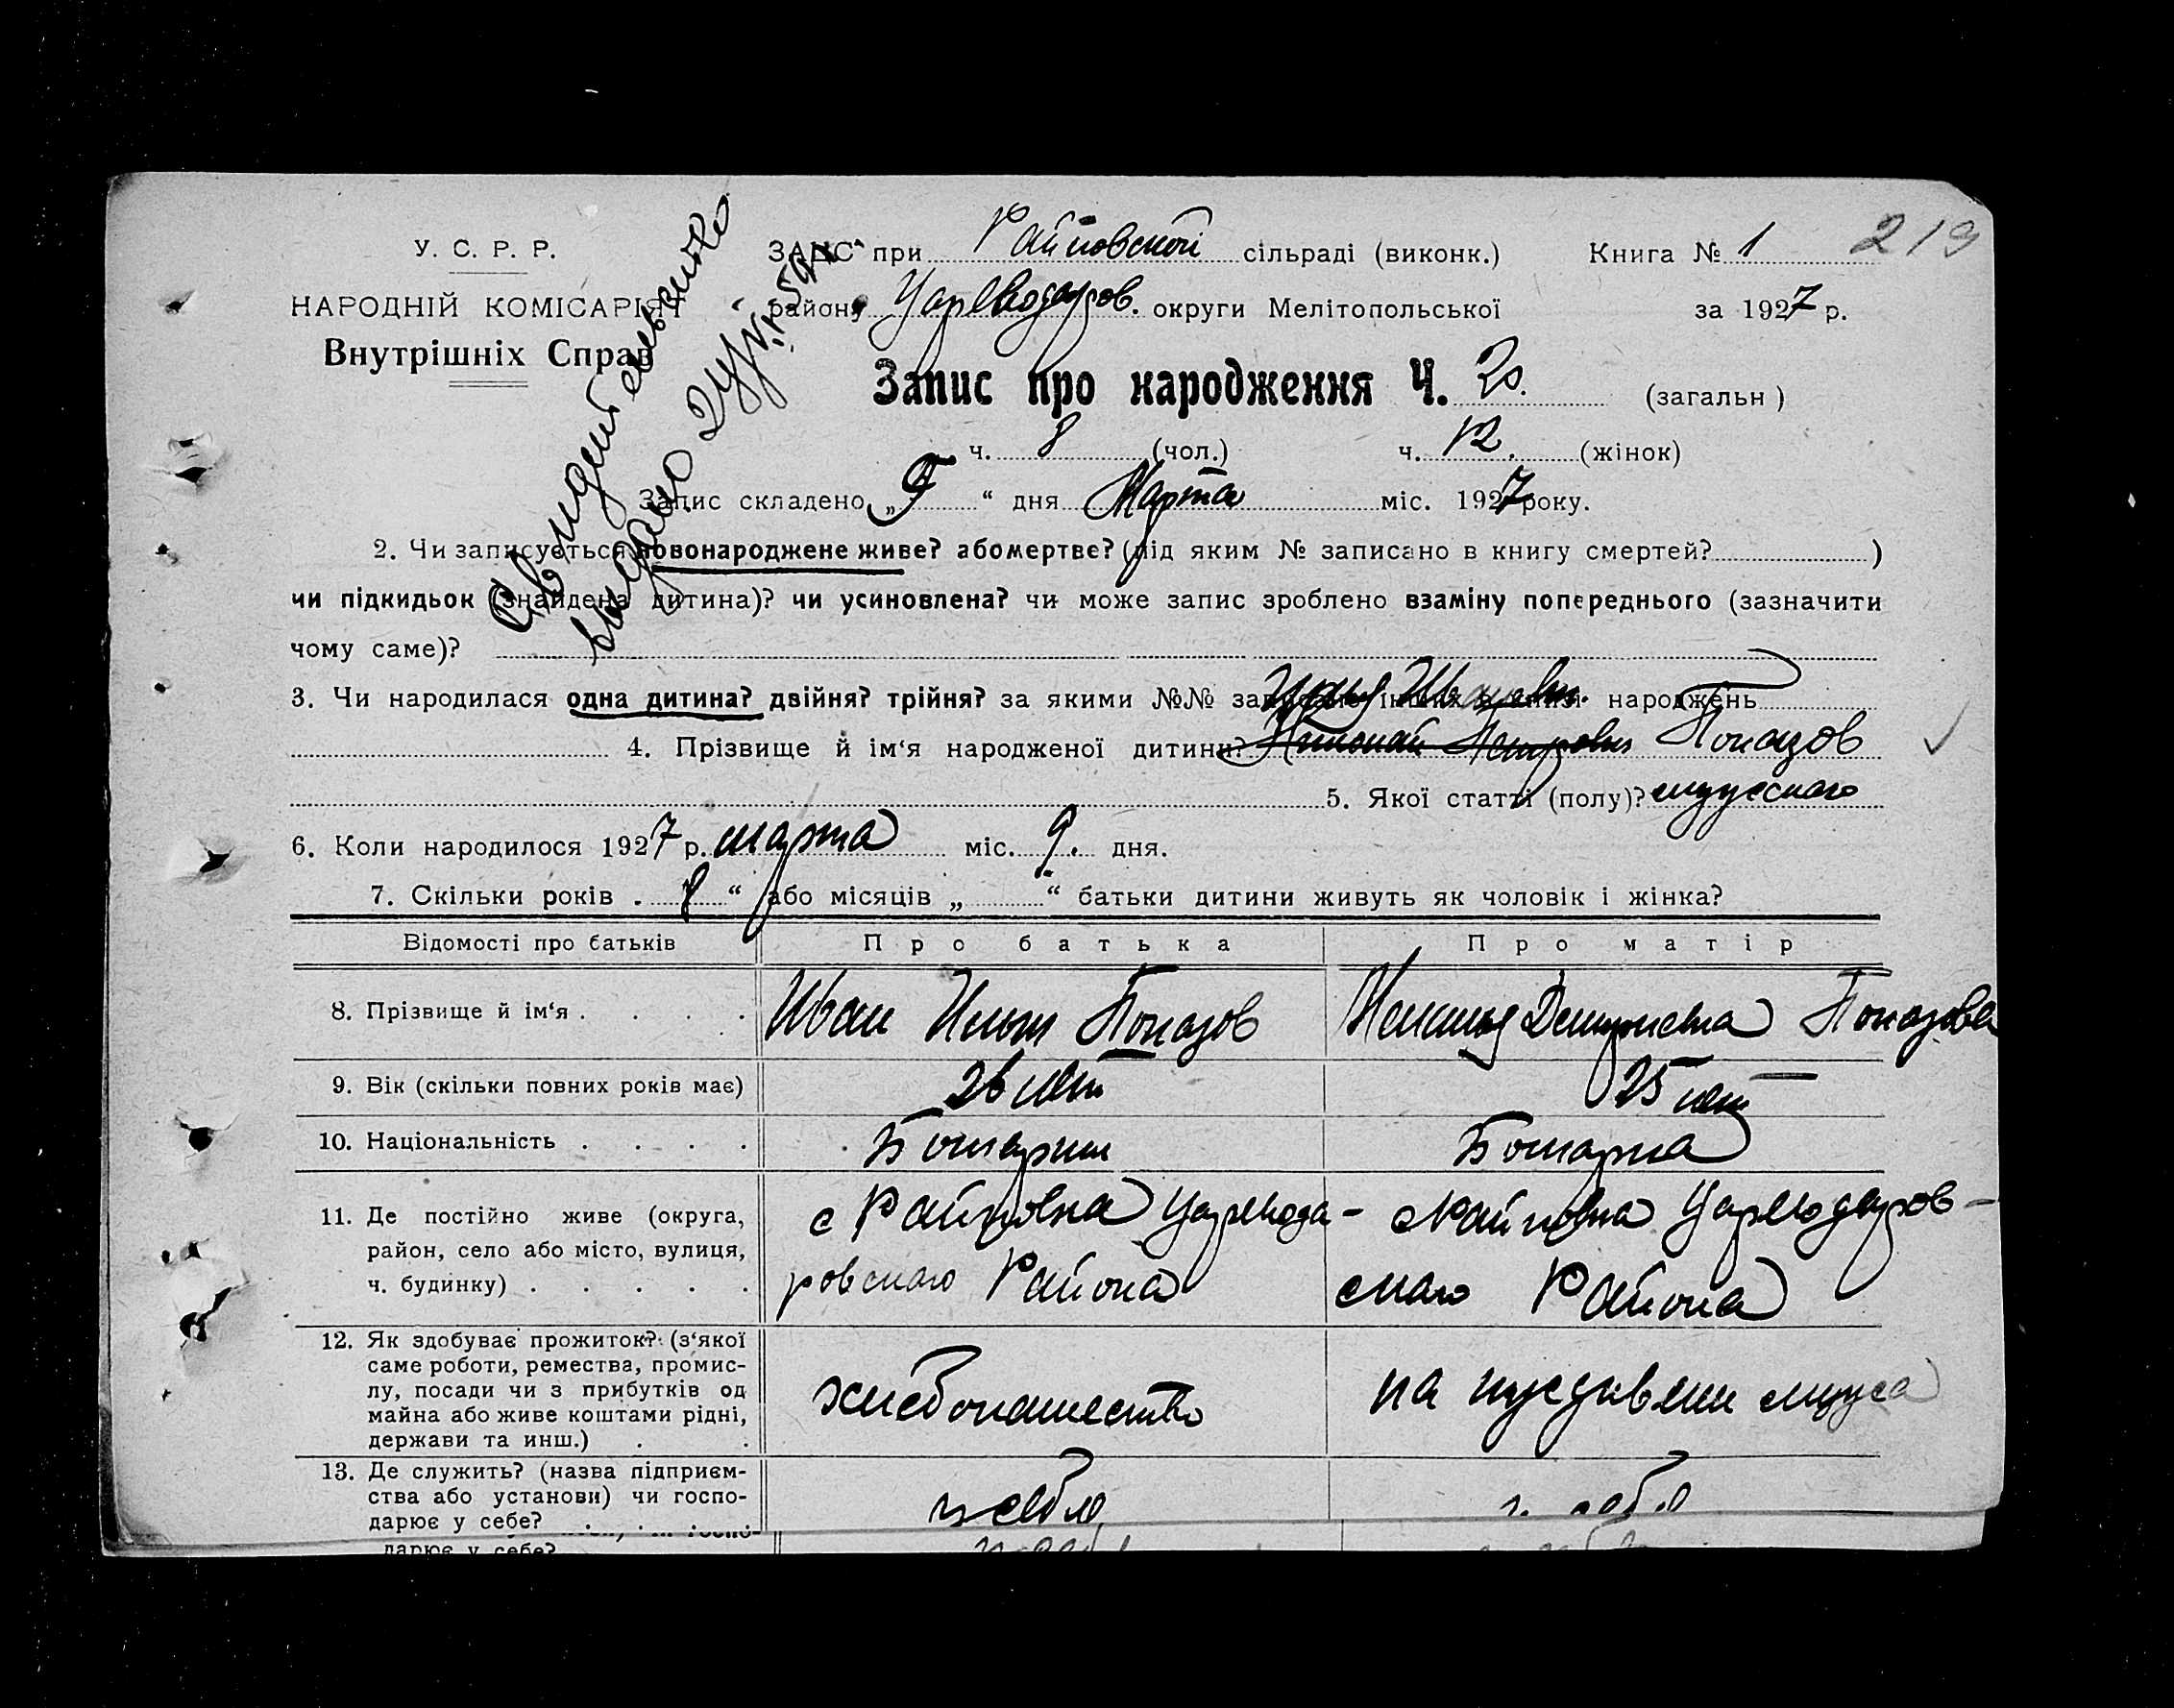 У. С. Р. Р.
НАРОДНІЙ КОМІСАРІЯТ
Внутрішніх Справ
ЗАПС при Райновской сільраді (виконк.)
Книга № 1
219
району Цареводаров. округи Мелітопольської
за 1927 р.
Запис про народження Ч. 20. (загальн)
ч. 8 (чол.) ч. 12. (жінок)
Запис складено „ “ дня Марта міс. 1927 року.
Свидетельство
выдано
2. Чи записується новонароджене живе? або мертве? (під яким № записано в книгу смертей? )
чи підкидьок (знайдена дитина)? чи усиновлена? чи може запис зроблено взаміну попереднього (зазначити
чому саме)?
3. Чи народилася одна дитина? двійня? трійня? за якими №№ записано інших в книзі народжень
Илья Иванович
4. Прізвище й ім‘я народженої дитини? Николай Петрович Показов
5. Якої статті (полу)? мужского
6. Коли народилося 1927 р. марта міс. 9. дня.
7. Скільки років . 8 “ або місяців „ “ батьки дитини живуть як чоловік і жінка?
Відомості про батьків Про батька Про матір
8. Прізвище й ім‘я . . . . Иван Ильич Показов Демидовна Показова
9. Вік (скільки повних років має) 26 лет 25 лет
10. Національність . . . . Болгарин Болгарка
11. Де постійно живе (округа, район, село або місто, вулиця, ч. будинку) . . . . .
с Райновка Цареводаровского Района
с Райновка Цареводаровского Района
12. Як здобуває прожиток? (з‘якої
саме роботи, ремества, промис-
лу, посади чи з прибутків од
майна або живе коштами рідні,
держави та инш.) . .
хлебопашество
на иждивении мужа
13. Де служить? (назва підприєм-
ства або установи) чи госпо-
дарює у себе? . . . .
у себя
у себя
дарює у себе?